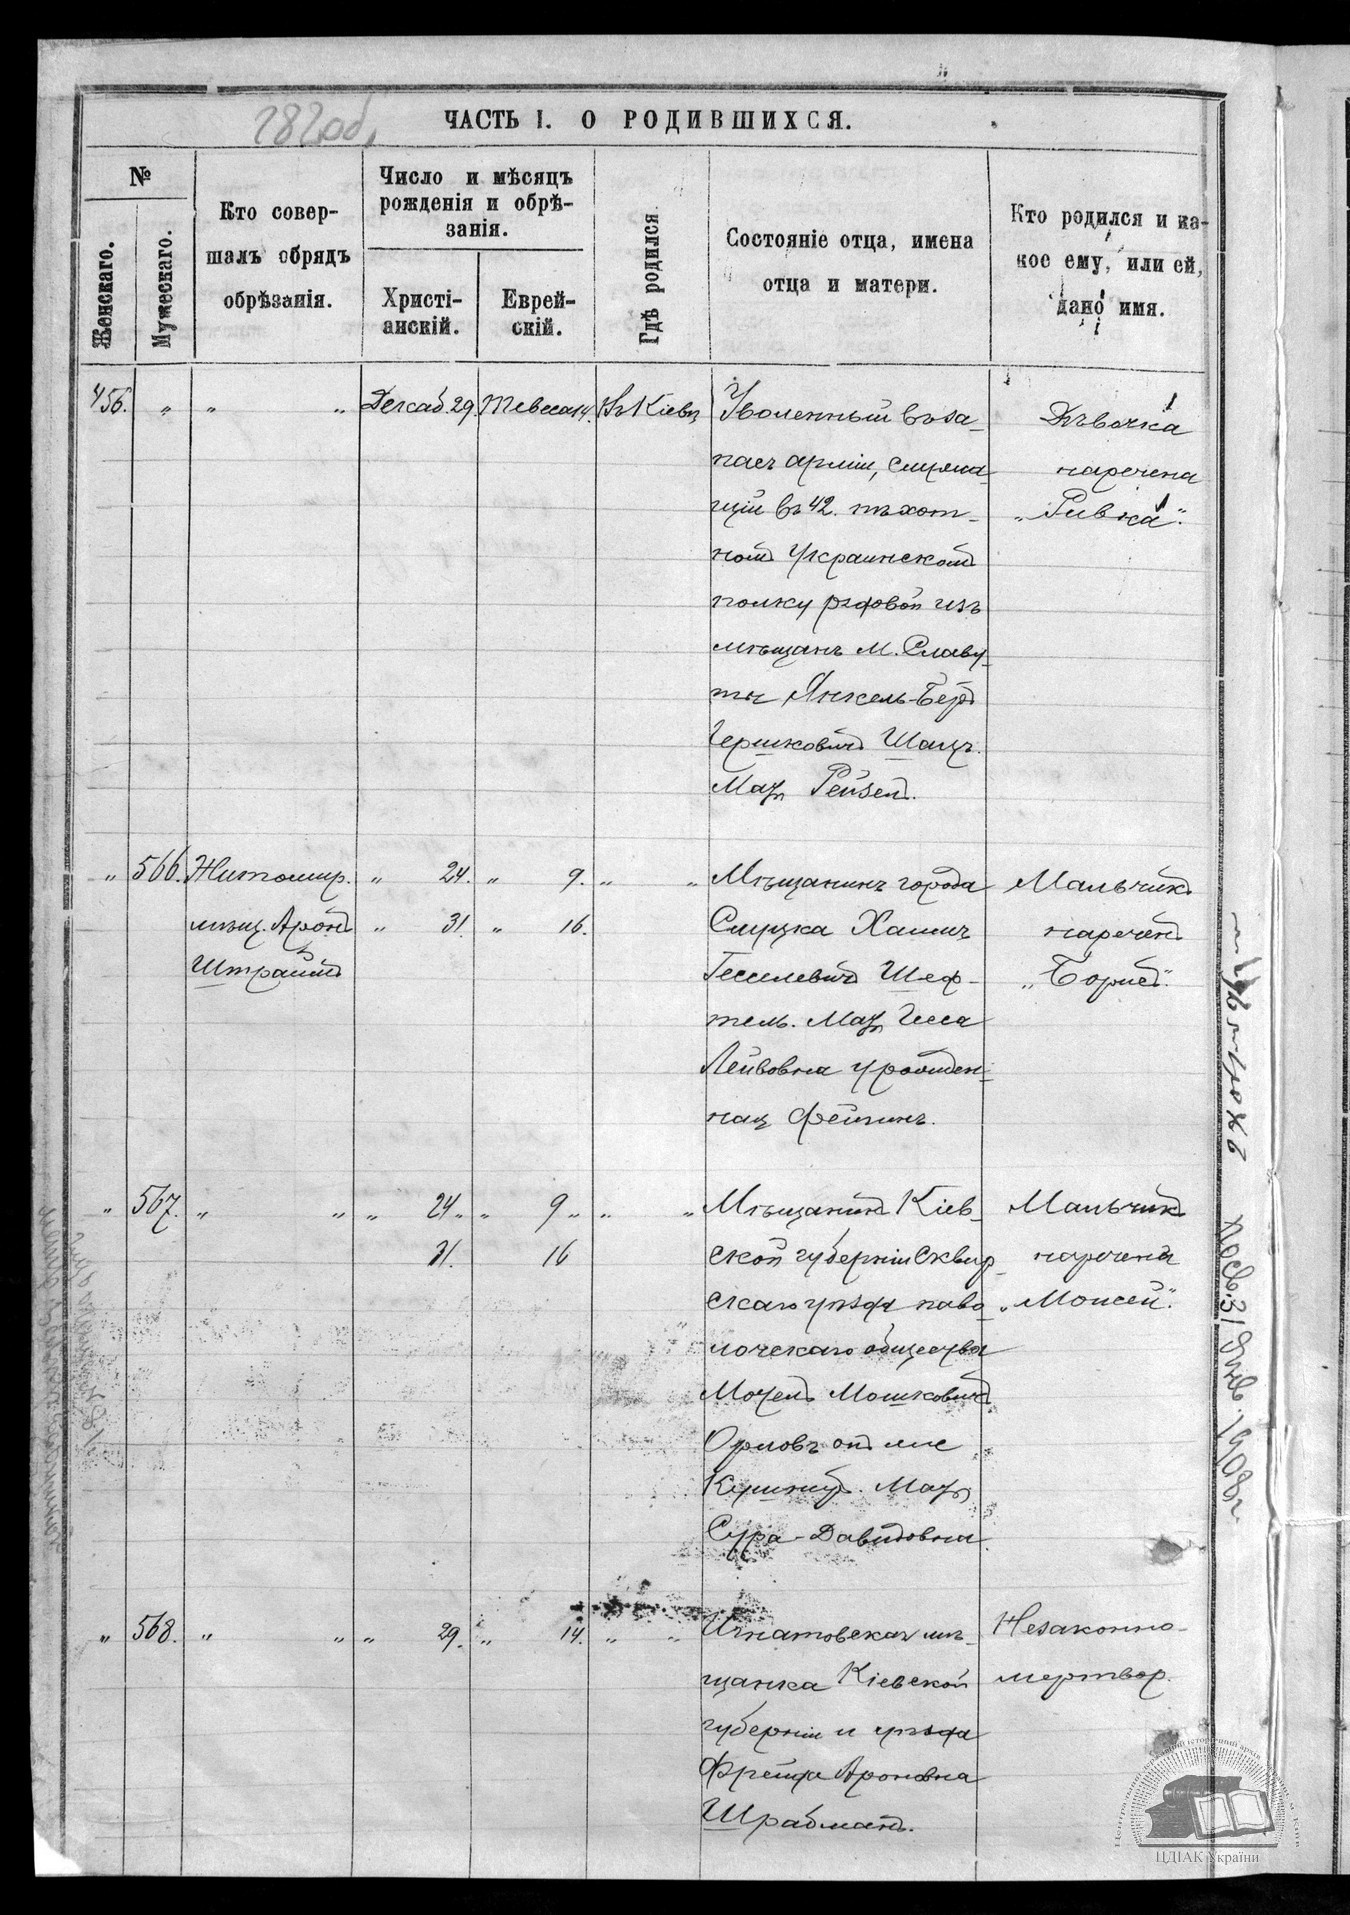 282об.
ЧАСТЬ I. О РОДИВШИХСЯ.
№
Женскаго.
Мужескаго.
Кто совер-
шалъ обрядъ
обрѣзанія.
Число и мѣсяцъ
рожденія и обрѣ-
занія.
Христі-
анскій.
Еврей-
скій.
Гдѣ родился
Состояніе отца, имена
отца и матери.
Кто родился и ка-
кое ему, или ей,
дано имя.
456. " " " Декаб. 29. Тевеса 14. Въ Кіевѣ
Уволенный въ за-
пасъ арміи, служа-
щій въ 42. пѣхот-
номъ Украинскомъ
полку рядовой изъ
мѣщанъ м. Славу-
ты Янкель-Беръ
Гершковичъ Шацъ.
Мать Рейзель.
Дѣвочка
наречена
"Ривка".
" 566. Житомир. " 24. " 9. " "
мѣщ. Аронъ " 31. " 16.
Штраймъ
Мѣщанинъ города
Слуцка Хаимъ
Гессилевичъ Шеф-
тель. Мать Песса
Лейбовна урожден-
ная Фейгинъ.
Мальчикъ
нареченъ
"Борисъ".
" 567. " " " 24. " " 9 " " "
31. 16
Мѣщанинъ Кіев-
ской губерніи Сквир-
скаго уѣзда паво-
лочскаго общества
Мошковичъ
Орловъ онъ же
Мать
Сура-Давидовна.
Мальчикъ
нареченъ
"Моисей".
" 568. " " " 29. " 14. " "
Игнатовская мѣ-
щанка Кіевской
губерніи и уѣзда
Фрейда Ароновна
Шрабманъ.
Незаконно-
мертвор.
31 Янв. 1908 г.
ЦДІАК України